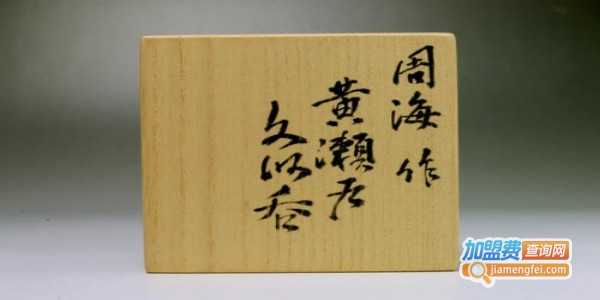 周海 作
黄瀬戸
久以呑
加盟费查询网
jiamengfei.com